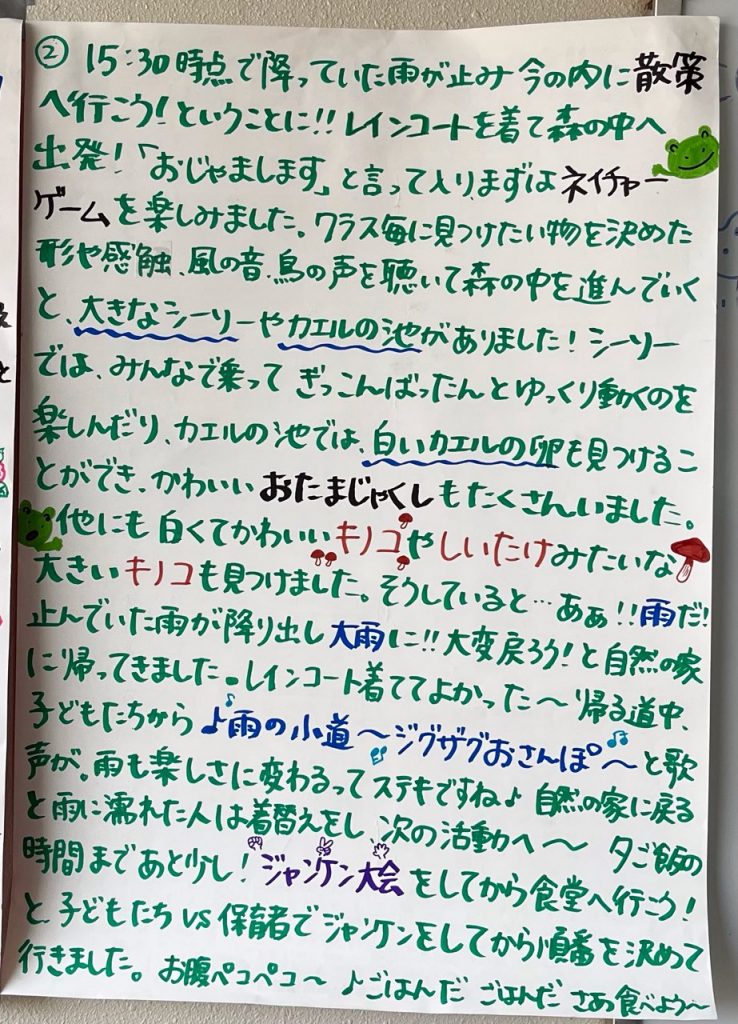 ② 15:30時点で降っていた雨が止み今の内に散策
へ行こう!ということに!!レインコートを着て森の中へ
出発!「おじゃまします」と言って入り、まずはネイチャー
ゲームを楽しみました。クラス毎に見つけたい物を決めた
形や感触、風の音、鳥の声を聴いて森の中を進んでいく
と、大きなシーソーやカエルの池がありました!シーソー
では、みんなで乗ってぎっこんばったんとゆっくり動くのを
楽しんだり、カエルの池では、白いカエルの卵も見つけるこ
とができ、かわいいおたまじゃくしもたくさんいました。
他にも白くてかわいいキノコやしいたけみたいな
大きいキノコも見つけました。そうしていると…あぁ!!雨だ!
止んでいた雨が降り出し大雨に!!大変戻ろう!と自然の家
に帰ってきました。レインコート着ててよかった〜帰る道中、
子どもたちから♪雨の小道〜ジグザグおさんぽ〜と歌
声が。雨も楽しさに変わるってステキですね♪自然の家に戻る
と雨に濡れた人は着替えをし、次の活動へ〜夕ご飯の
時間まであと少し!ジャンケン大会をしてから食堂へ行こう!
と子どもたちVS保育者でジャンケンをしてから順番を決めて
行きました。お腹ペコペコ〜♪ごはんだごはんださあ食べよう〜